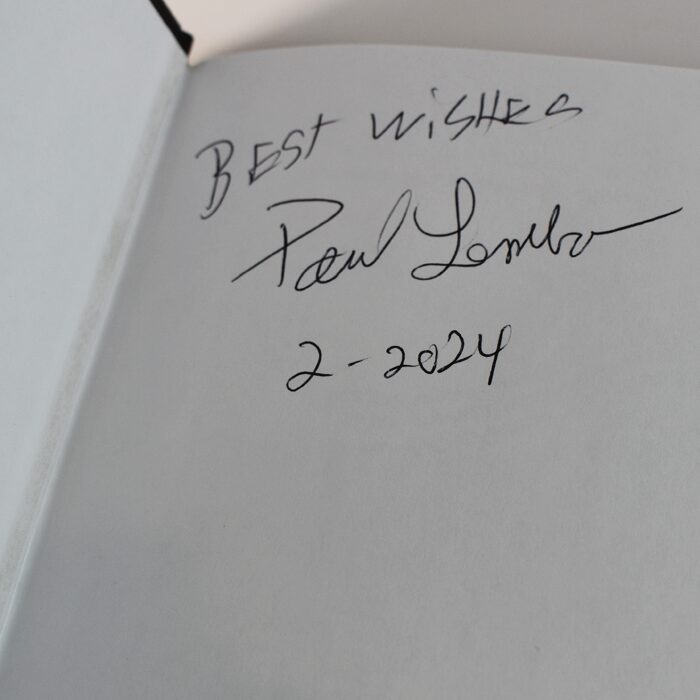 BEST WISHES
Paul Lombo
2-2024